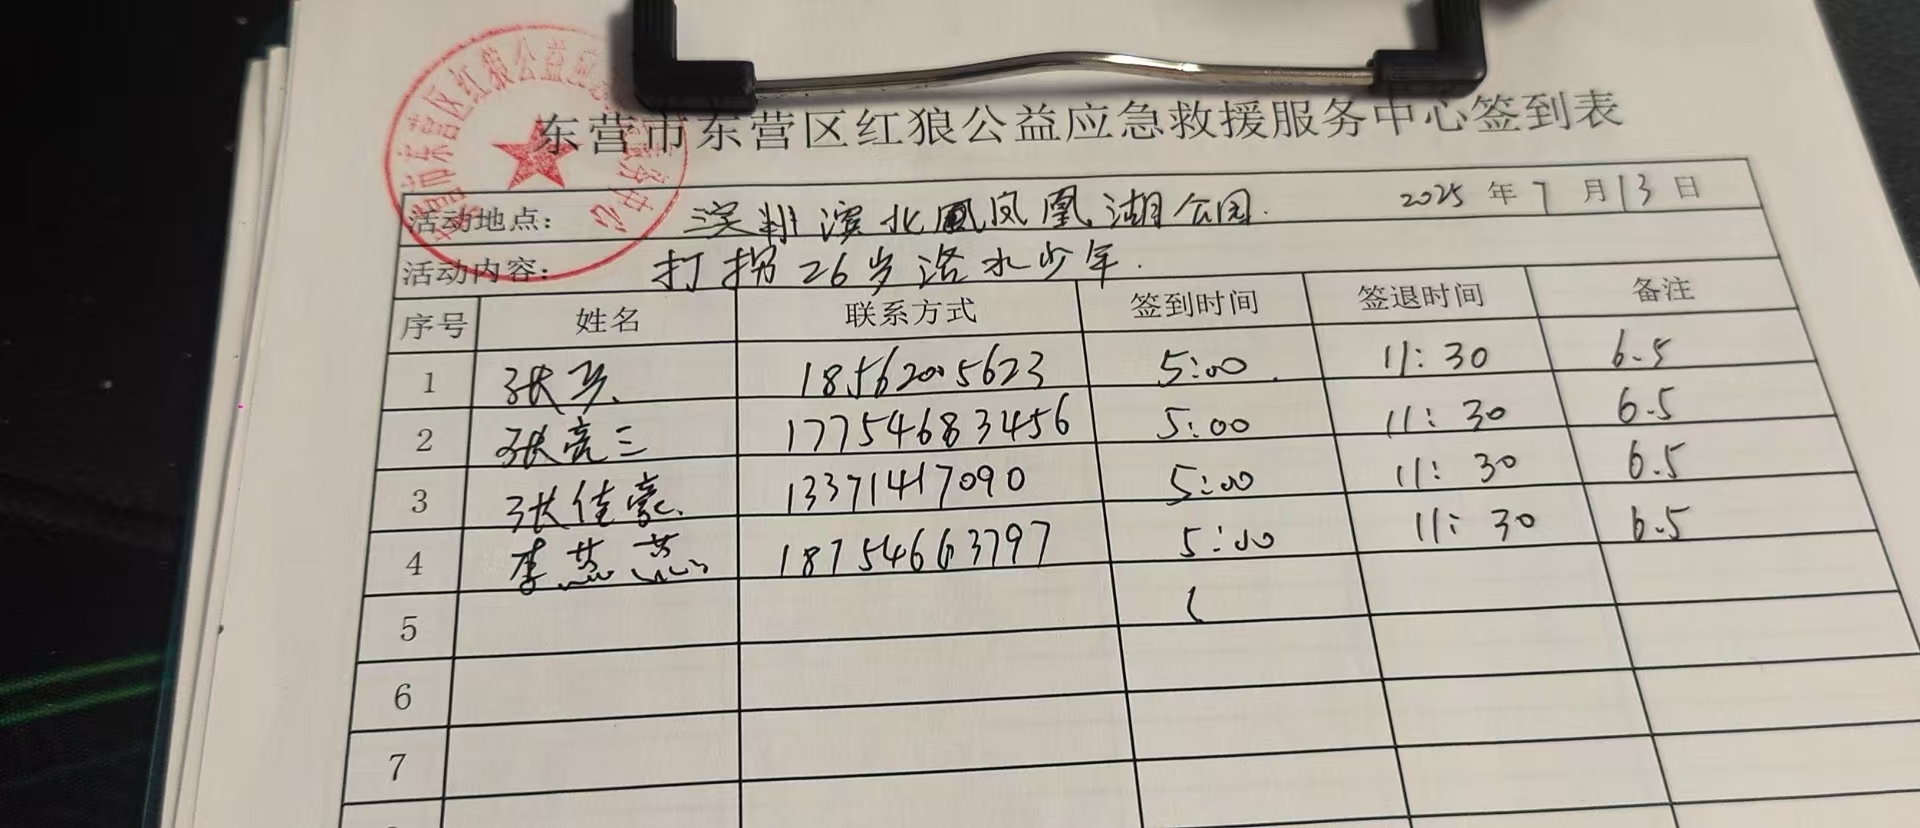 东营市东营区红狼公益应急救援服务中心签到表
活动地点: 滨州滨北凤凰湖公园. 2025 年 7 月 13 日
活动内容: 打捞26岁洛水少年.
序号 姓名 联系方式 签到时间 签退时间 备注
1 张 18562005623 5:00 11:30 6.5
2 张亮三 17754683456 5:00 11:30 6.5
3 张佳豪 13371417090 5:00 11:30 6.5
4 李燕燕 18754663797 5:00 11:30 6.5
5
6
7